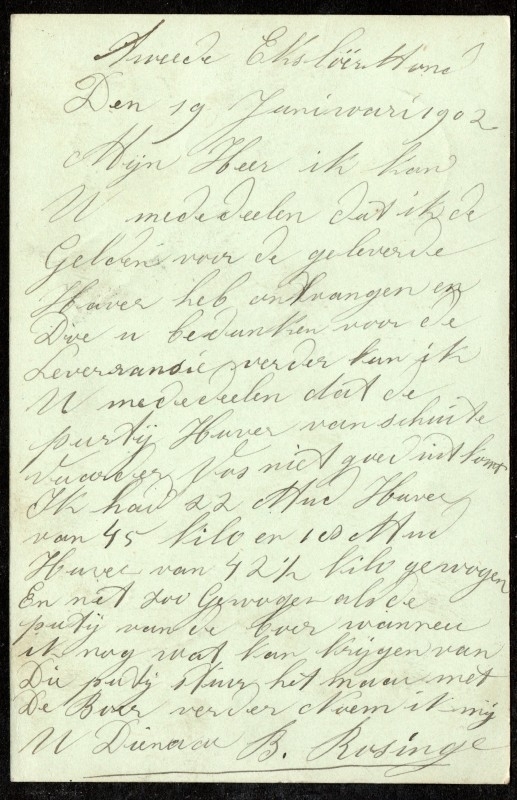 Tweede Eksloër Mond
Den 19 Januiwari 1902
Mijn Heer ik kan
U mededeelen dat ik de
Gelden voor de geleverde
Haver heb ontvangen en
Doe u bedanken voor de
Leverransie verder kan ik
U mededeelen dat de
purtij Haver van schuite
vaarder Vos niet goed uit komt
Ik had 22 Mud Haver
van 45 kilo en 100 Mud
Haver van 42½ kilo gewogen
En net zoo Gewogen als de
putij van de boer wanneer
ik nog wat kan krijgen van
Die putij stuur het maar met
De Boer verder Noem ik mij
U Dienaar B. Rosinge